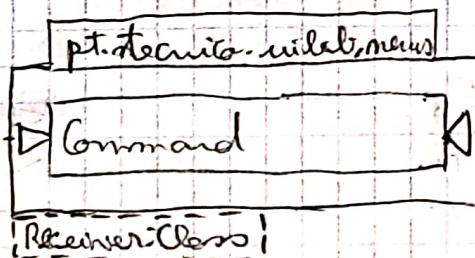 pt.stecnico.uilib.menus
Command
ReceiverClass